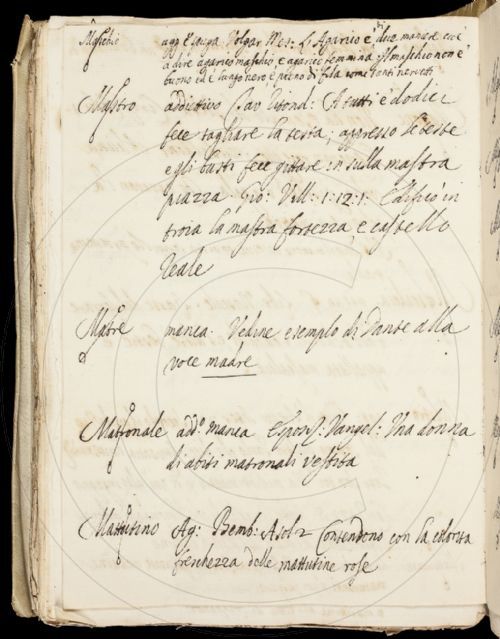 Maschio agg. Volgar. Mes: L'Agarico è di due maniere cioè
a dire agarico maschio, e agarico femmina. Il maschio non è
buono ed è lungo nero e pieno di fila come tanti nervetti
Mastro addiettivo Fav. Esop: A tutti e dodici
fece tagliare la testa; appresso le teste
e gli busti fece gittare in sulla mastra
piazza. Gio: Vill: 1:12:1: Edificò in
troia la mastra fortezza, e castello
reale
Matre manca. Vedine esempio di Dante alla
voce madre
Matronale add.o manca Esposiz: Vangel: Una donna
di abiti matronali vestita
Mattutino Ag: Bemb: Asol 2 Contendono con la colorita
freschezza delle mattutine rose